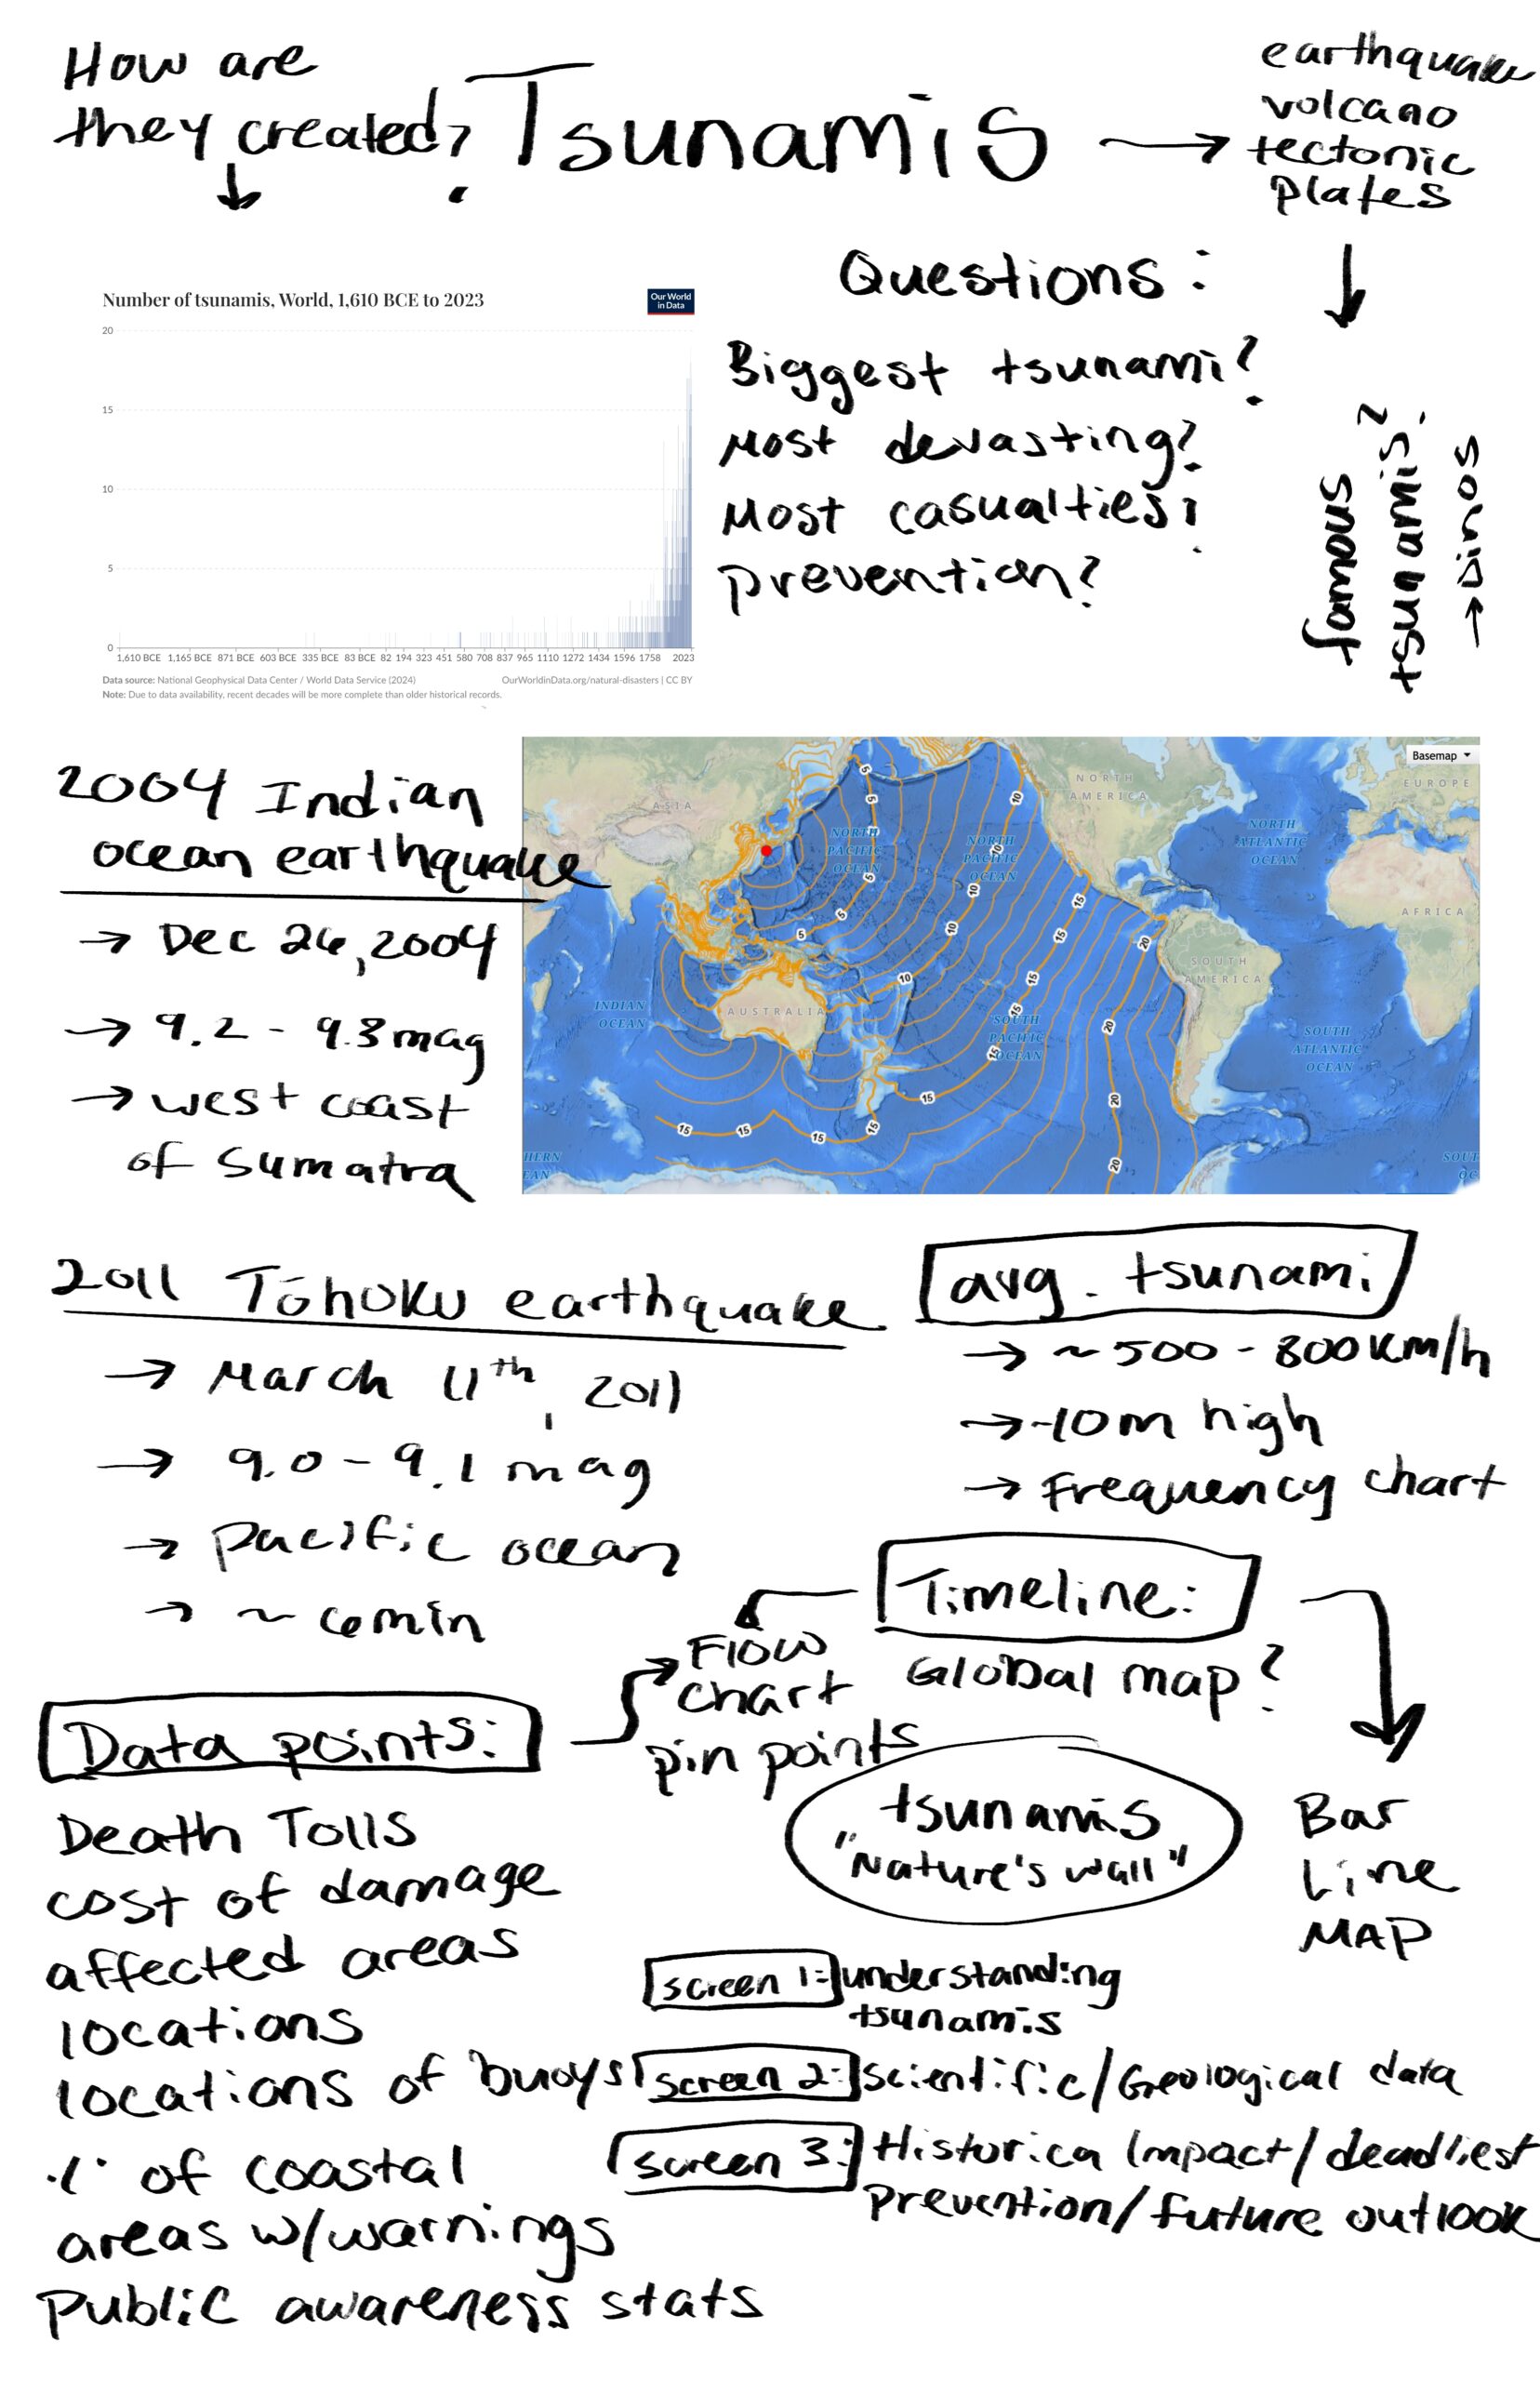 How are
they created?
Tsunamis
earthquake
volcano
tectonic
plates
Number of tsunamis, World, 1,610 BCE to 2023
Our World
in Data
20
15
10
5
0
1,610 BCE 1,165 BCE 871 BCE 603 BCE 335 BCE 83 BCE 82 194 323 451 580 708 837 965 1110 1272 1434 1596 1758 2023
Data source: National Geophysical Data Center / World Data Service (2024)
OurWorldinData.org/natural-disasters | CC BY
Note: Due to data availability, recent decades will be more complete than older historical records.
Questions:
Biggest tsunami?
Most devasting?
Most casualties?
prevention?
famous
tsunamis?
→ Dinos
2004 Indian
ocean earthquake
→ Dec 26, 2004
→ 9.2 - 9.3 mag
→ west coast
of Sumatra
Basemap
ASIA
NORTH
AMERICA
EUROPE
NORTH
PACIFIC
OCEAN
NORTH
PACIFIC
OCEAN
NORTH
ATLANTIC
OCEAN
AFRICA
SOUTH
AMERICA
INDIAN
OCEAN
AUSTRALIA
SOUTH
PACIFIC
OCEAN
SOUTH
ATLANTIC
OCEAN
HERN
EAN
SOUT
OC
5
5
5
5
5
10
10
10
10
10
15
15
15
15
15
15
15
15
15
15
20
20
20
20
2011 Tōhoku earthquake
→ March 11th, 2011
→ 9.0 - 9.1 mag
→ pacific ocean
→ ~ 6min
avg. tsunami
→ ~500 - 800km/h
→ ~10m high
→ Frequency chart
Timeline:
Global map?
Flow
chart
pin points
Bar
Line
MAP
Data points:
Death Tolls
cost of damage
affected areas
locations
locations of buoys
% of coastal
areas w/warnings
public awareness stats
tsunamis
"Nature's wall"
screen 1: understanding
tsunamis
screen 2: scientific/Geological data
screen 3: Historica Impact/deadliest
prevention/future outlook